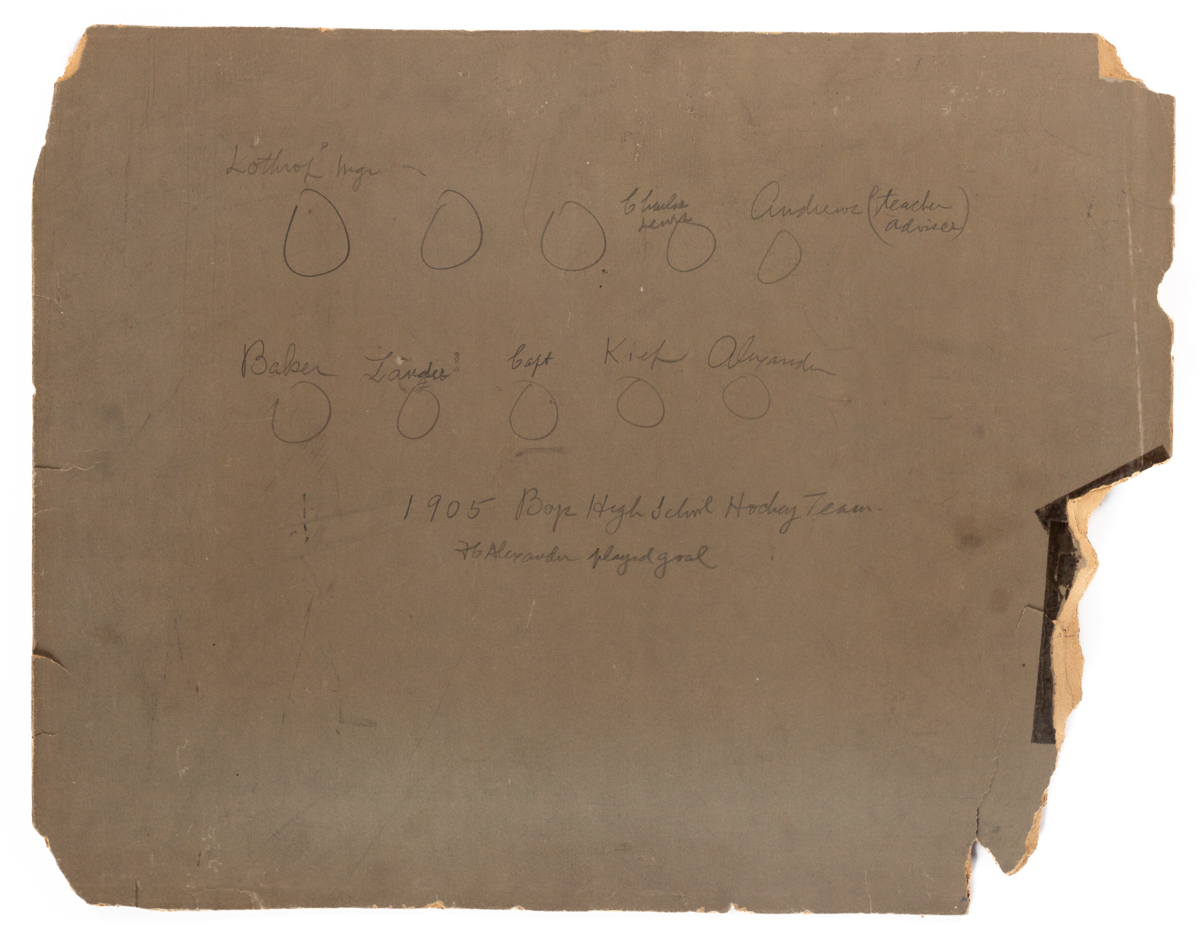 Lothrop? Mgr
Charles
Lewis
Andrews (teacher
adviser)
Baker Landis? Capt Kief Alexander
1905 Boys High School Hockey Team.
Alexander played goal